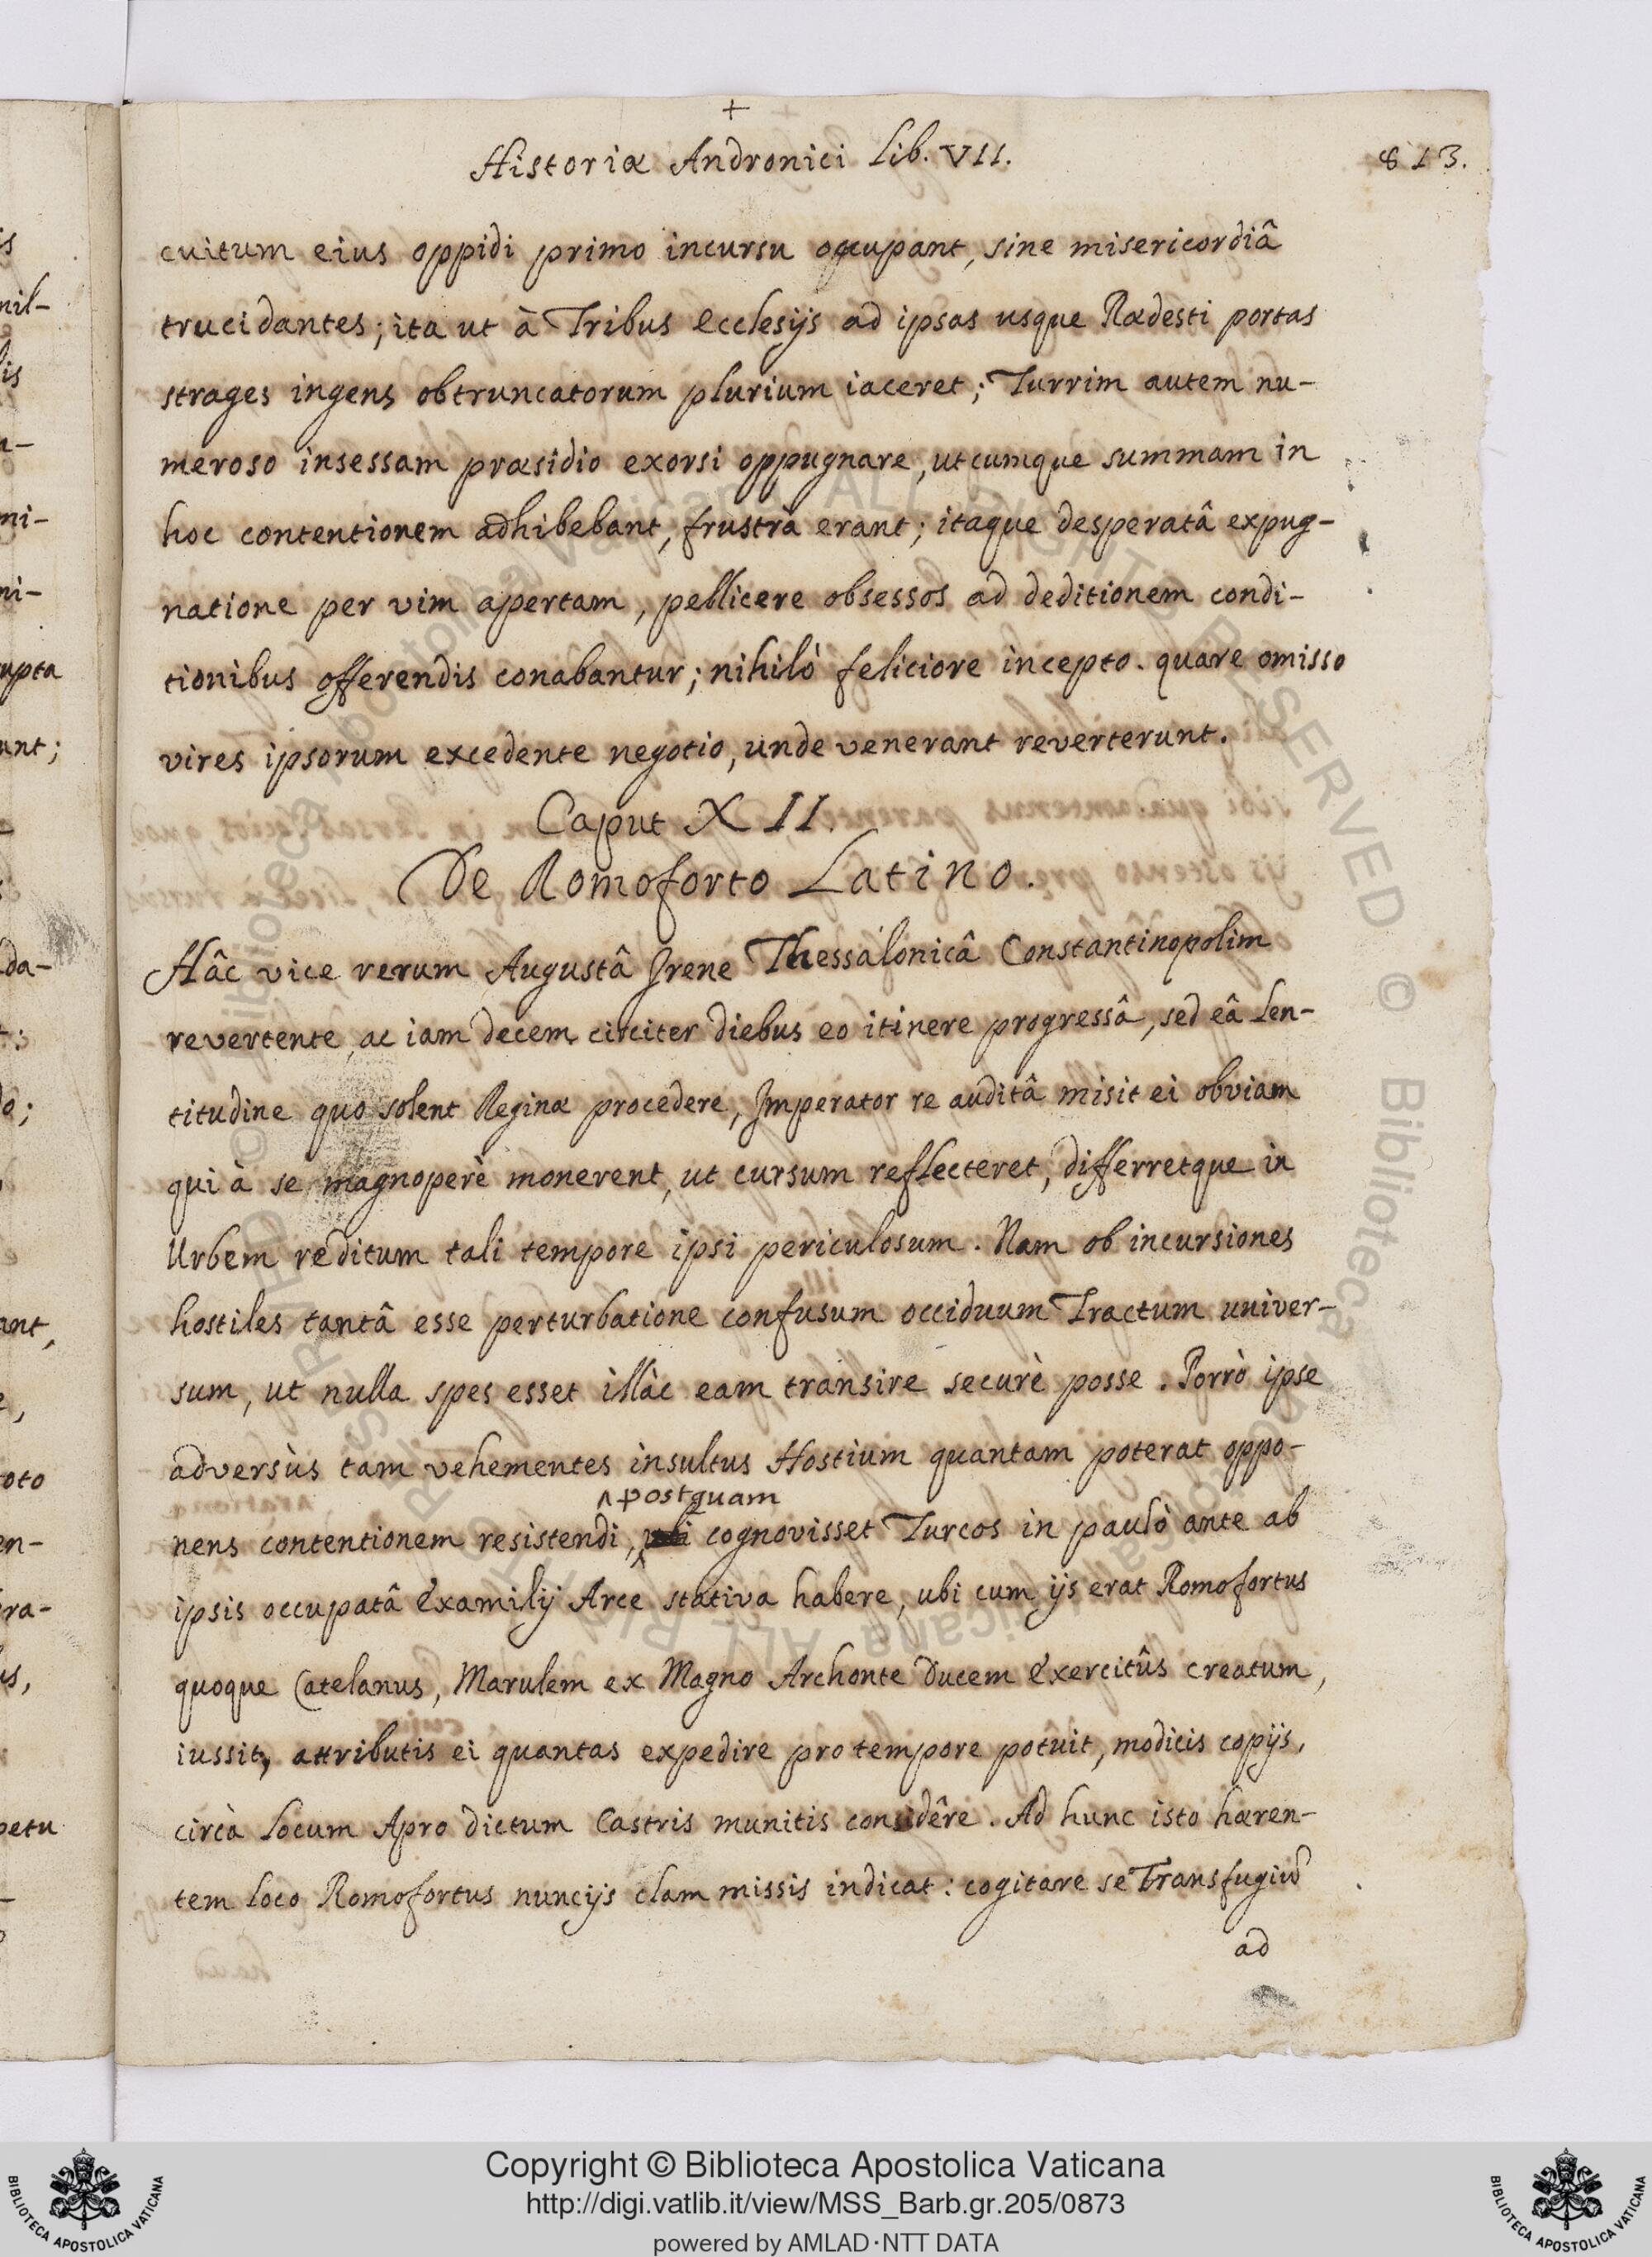 +
Historiæ Andronici Lib. VII.
813.
cuitum eius oppidi primo incursu occupant, sine misericordiâ
trucidantes; ita ut à Tribus Ecclesijs ad ipsas usque Rædesti portas
strages ingens obtruncatorum plurium iaceret; Turrim autem nu-
meroso insessam præsidio exorsi oppugnare, utcumque summam in
hoc contentionem adhibebant, frustrà erant; itaque desperatâ expug-
natione per vim apertam, pellicere obsessos ad deditionem condi-
tionibus offerendis conabantur; nihilò feliciore incepto. quare omisso
vires ipsorum excedente negotio, unde venerant reverterunt.
Caput XII.
De Romoforto Latino.
Hâc vice rerum Augustâ Irene Thessalonicâ Constantinopolim
revertente, ac iam decem circiter diebus eo itinere progressâ, sed eâ len-
titudine quo solent Reginæ procedere, Imperator re auditâ misit ei obviam
qui à se magnoperè monerent, ut cursum reflecteret, differretque in
Urbem reditum tali tempore ipsi periculosum. Nam ob incursiones
hostiles tantâ esse perturbatione confusum occiduum Tractum univer-
sum, ut nulla spes esset illàc eam transire securè posse. Porrò ipse
adversùs tam vehementes insultus Hostium quantam poterat oppo-
postquam
nens contentionem resistendi, cognovisset Turcos in paulò ante ab
ipsis occupatâ Examilij Arce stativa habere, ubi cum ijs erat Romofortus
quoque Catelanus, Marulem ex Magno Archonte Ducem Exercitûs creatum,
iussit, attributis ei quantas expedire pro tempore potuit, modicis copijs,
circà locum Apro dictum Castris munitis considêre. Ad hunc isto hæren-
tem loco Romofortus nuncijs clam missis indicat: cogitare se Transfugiũ
ad
Copyright © Biblioteca Apostolica Vaticana
http://digi.vatlib.it/view/MSS_Barb.gr.205/0873
powered by AMLAD·NTT DATA